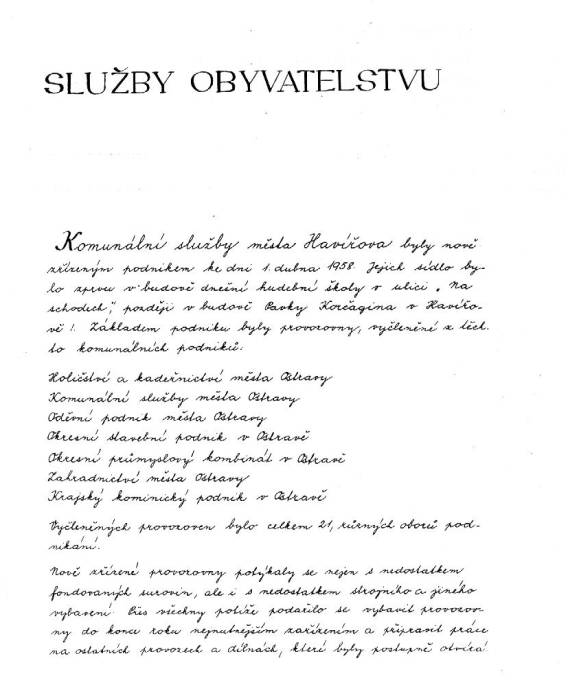 SLUŽBY OBYVATELSTVU
Komunální služby města Havířova byly nově
zřízeným podnikem ke dni 1. dubna 1958. Jejich sídlo by-
lo zprvu v budově dnešní hudební školy v ulici „Na
schodech", později v budově Pavky Korčagina v Havířo-
vě I. Základem podniku byly provozovny, vyčleněné z těch-
to komunálních podniků:
Holičství a kadeřnictví města Ostravy
Komunální služby města Ostravy
Oděvní podnik města Ostravy
Okresní stavební podnik v Ostravě
Okresní průmyslový kombinát v Ostravě
Zahradnictví města Ostravy
Krajský kominický podnik v Ostravě
Vyčleněných provozoven bylo celkem 21, různých oborů pod-
nikání.
Nově zřízené provozovny potýkaly se nejen s nedostatkem
fondovaných surovin, ale i s nedostatkem strojního a jiného
vybavení. Přes všechny potíže podařilo se vybavit provozov-
ny do konce roku nejnutnějším zařízením a připravit práce
na ostatních provozech a dílnách, které byly postupně otvírá